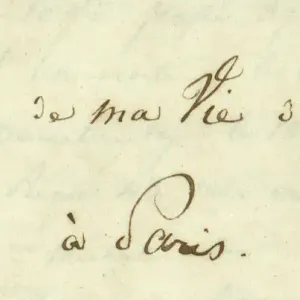 de ma Vie
à Paris.